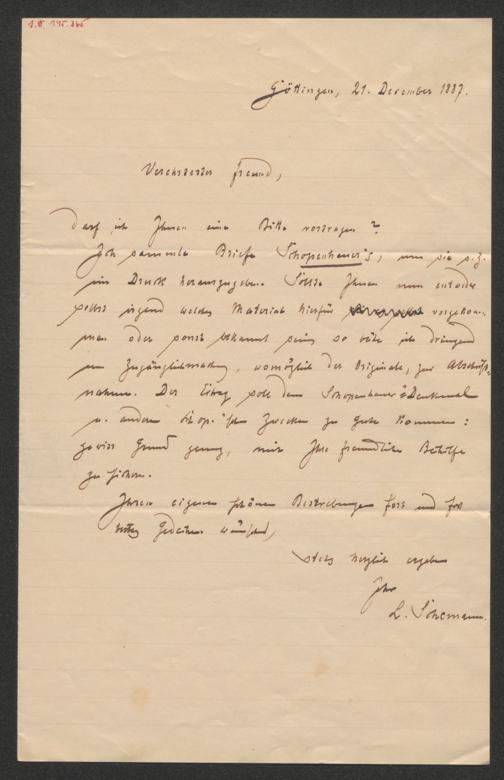 I.N. 195.865
Göttingen, 21. December 1887.
Verehrtester Freund,
Darf ich Ihnen eine Bitte vortragen?
Ich sammle Briefe Schopenhauer's, um sie s. Z.
im Druck herauszugeben. Sollte Ihnen nun entweder
selbst irgend welches Material hierfür vorgekom-
men oder sonst bekannt sein, so bitte ich dringend
um Zugänglichmachung, womöglich der Originale, zur Abschrift-
nahme. Der Ertrag soll dem Schopenhauer-Denkmal
u. andren Schop.'schen Zwecken zu Gute kommen:
gewiss Grund genug, mir Ihre freundliche Beihilfe
zu sichern.
Ihren eigenen schönen Bestrebungen fort und fort
Gedeihen wünschend,
stets herzlich ergeben
Ihr
L. Schemann.